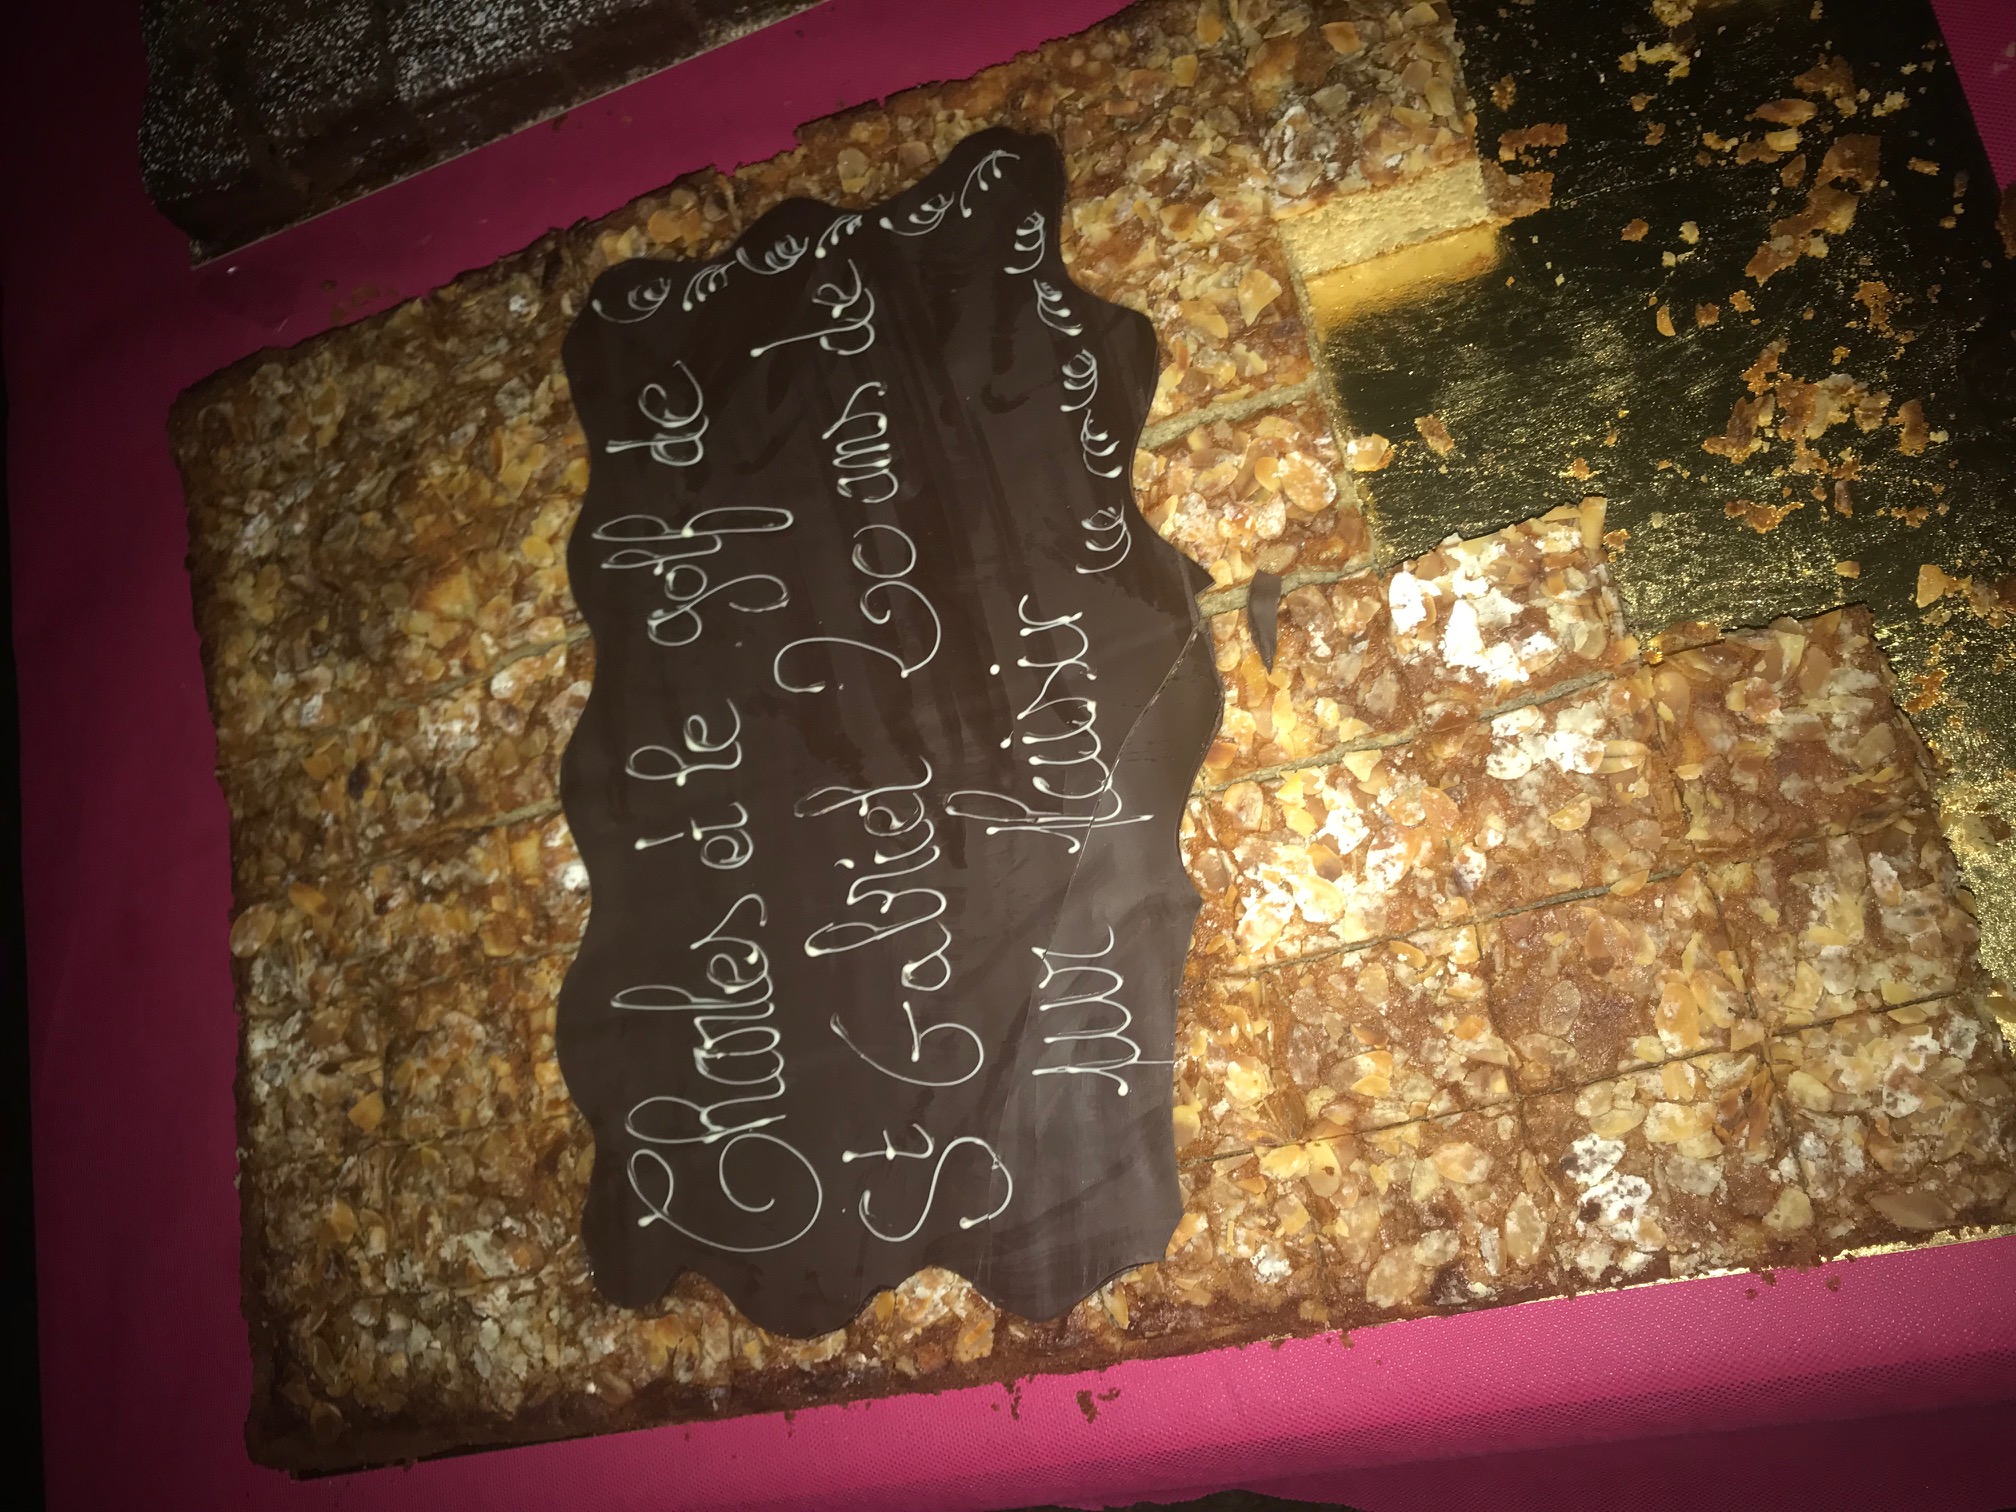 Charles et le golf de
St Gabriel 20 ans de
pur plaisir